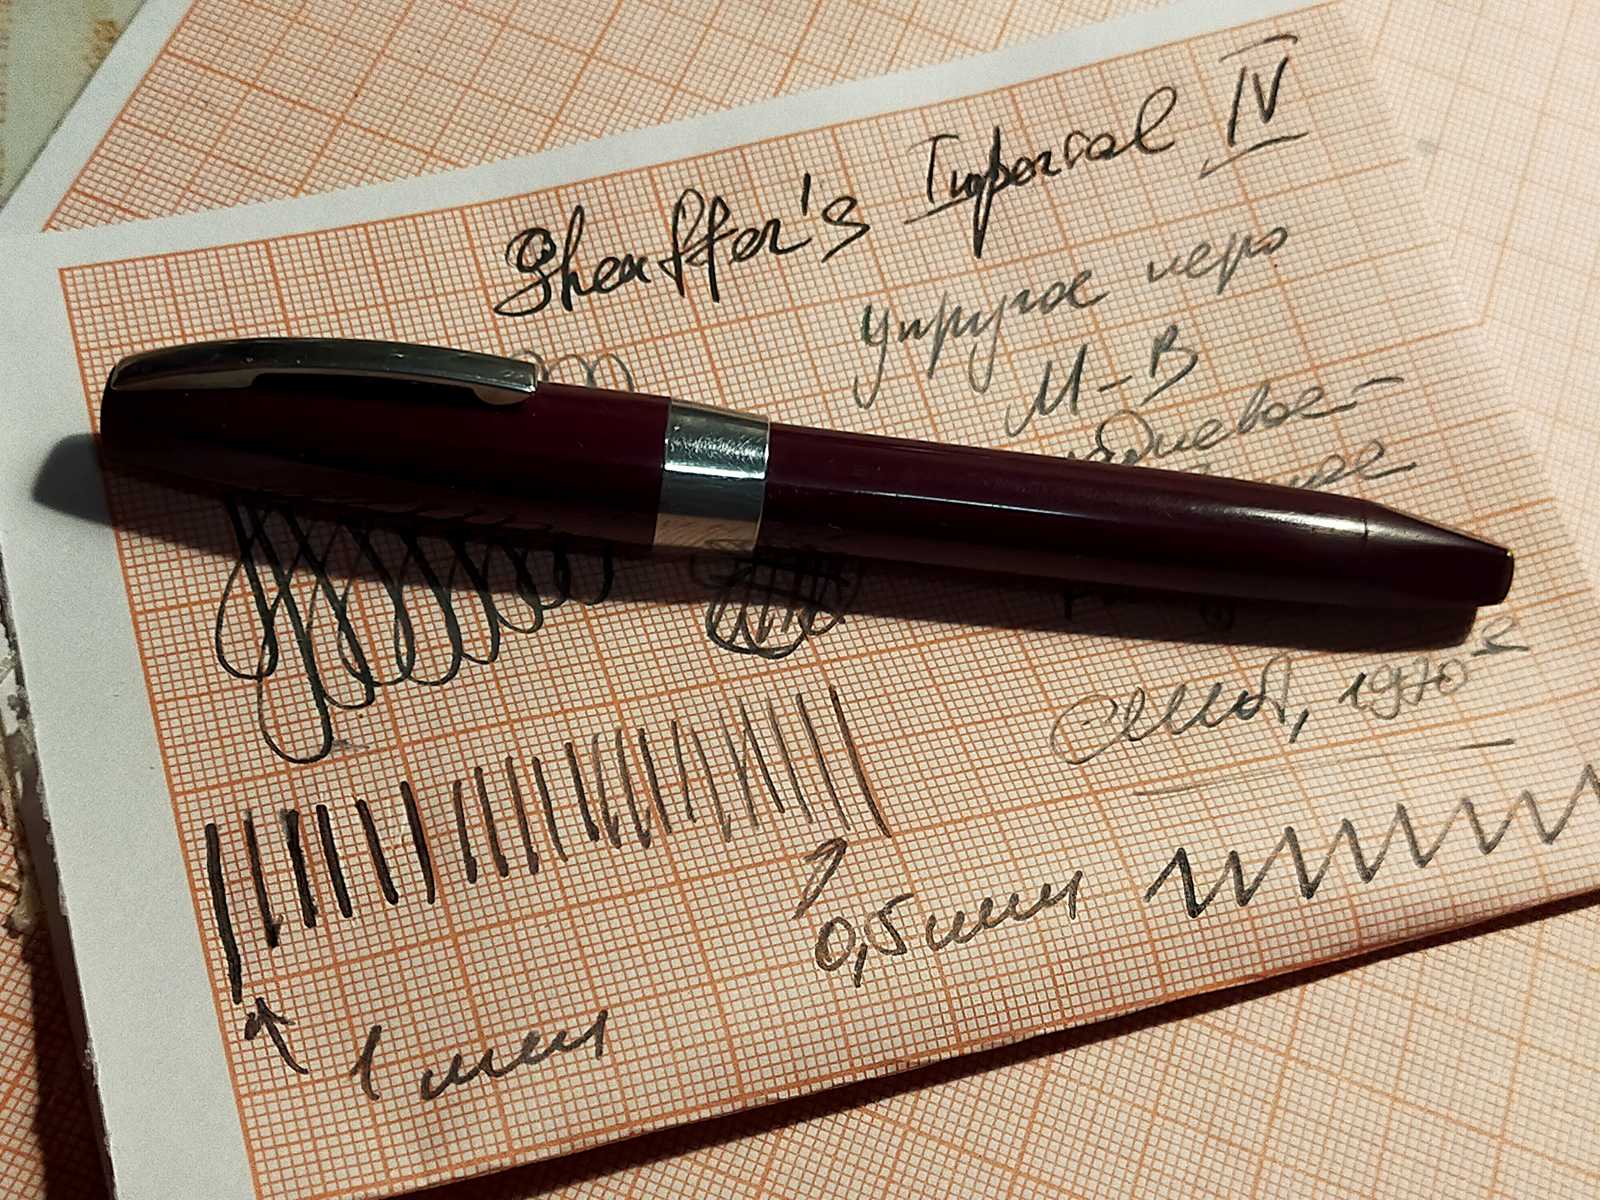 Sheaffer's Imperial IV
упругое перо
M-B
США, 1970-е
0,5 мм
1 мм